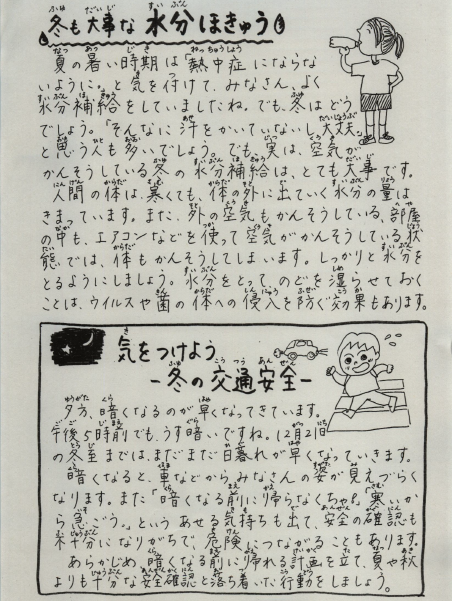 冬も大事な 水分ほきゅう
夏の暑い時期は「熱中症にならな
いように。」と気を付けて、みなさん、よく
水分補給をしていましたね。でも、冬はどう
でしょう。「そんなに汗をかいていないし、大丈夫。」
と思う人も多いでしょう。でも、実は、空気が
かんそうしている冬の水分補給は、とても大事です。
人間の体は、寒くても、体の外に出ていく水分の量は
きまっています。また、外の空気もかんそうしている、部屋
の中も、エアコンなどを使って空気がかんそうしている状
態では、体もかんそうしてしまいます。しっかりと水分を
とるようにしましょう。水分をとってのどを湿らせておく
ことは、ウイルスや菌の体への侵入を防ぐ効果もあります。
気をつけよう
-冬の交通安全-
夕方、暗くなるのが早くなってきています。
午後5時前でも、うす暗いですね。12月21日
の冬至までは、まだまだ日暮れが早くなっていきます。
暗くなると、車などからみなさんの姿が見えづらく
なります。また「暗くなる前に帰らなくちゃ。」「寒いか
ら急ごう。」という あせる気持ちも出て、安全の確認も
不十分になりがちで、危険につながることもあります。
あらかじめ、暗くなる前に帰れる計画を立て、夏や秋
よりも十分な安全確認と落ち着いた行動をしましょう。